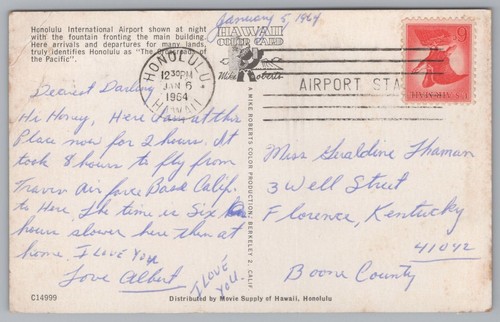 Honolulu International Airport shown at night
with the fountain fronting the main building.
Here arrivals and departures for many lands,
truly identifies Honolulu as "The Crossroads of
the Pacific".
January 5, 1964
HAWAII
COLOR CARD
Mike Roberts
HONOLULU
12 30PM
JAN 6
1964
HAWAII
AIRPORT STA
6¢
U.S. AIR MAIL
Dearest Darling
Hi Honey, Here I am at this
Place now for 2 hours. It
took 8 hours to fly from
Travis Air force Base Calif.
to Here. The time is Six
hours slower here then at
home. I LOVE YOU
Love Albert
I LOVE
YOU.
A MIKE ROBERTS COLOR PRODUCTION, BERKELEY 2, CALIF.
Miss Geraldine Thaman
3 Well Street
Florence, Kentucky
41042
Boone County
C14999
Distributed by Movie Supply of Hawaii, Honolulu